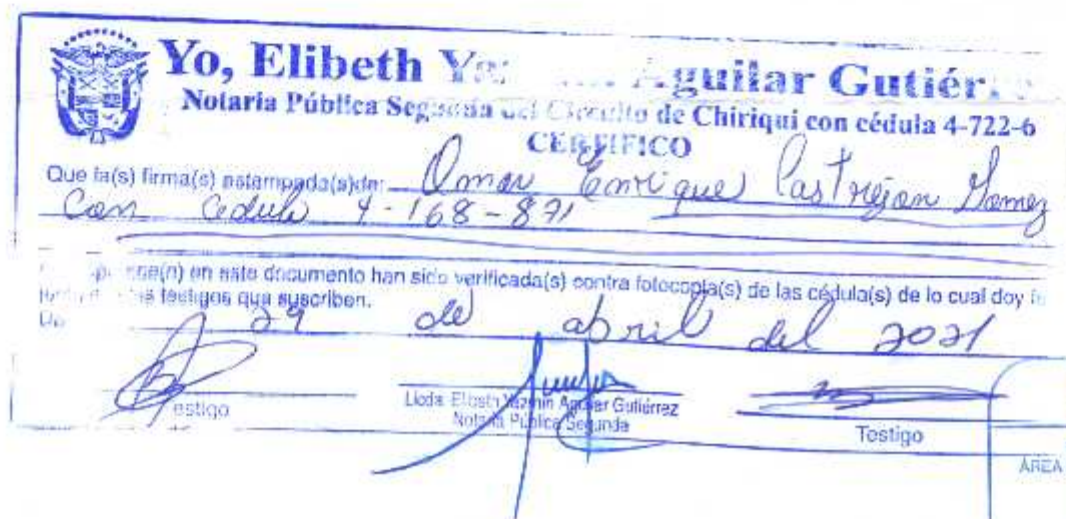 Yo, Elibeth Aguilar Gutiér
Notaria Pública Segunda del Circuito de Chiriqui con cédula 4-722-6
CERTIFICO
Que la(s) firma(s) estampada(s) de: Omar Enrique Castrejon Gomez
Con Cedula 4-168-871
en este documento han sido verificada(s) contra fotocopia(s) de las cédula(s) de lo cual doy fe
testigos que suscriben.
29 de abril del 2021
Licda. Elibeth Yazmin Aguilar Gutiérrez
Notaria Pública Segunda
Testigo
Testigo
ÁREA